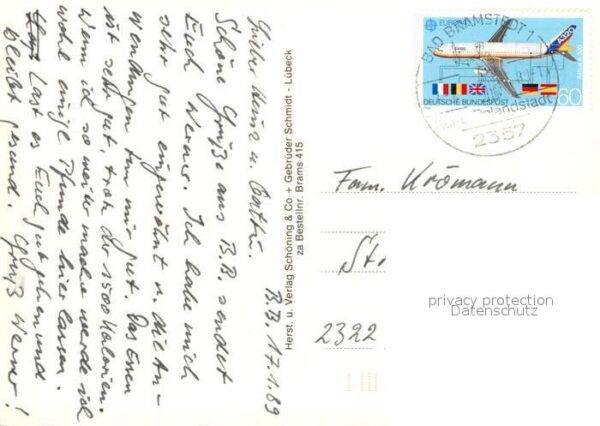 B.B. 17.1.89
Schöne Grüße aus B.B. sendet
Euch Werner. Ich habe mich
sehr gut eingewöhnt u. die An-
wendungen tun mir gut. Das Essen
ist sehr gut, trotz der 1500 Kalorien.
Wenn ich so weiter mache werde ich
wohl einige Pfunde hier lassen.
Last es Euch gut gehen und
bleibt gesund. Gruß Werner!
Herst. u. Verlag Schöning & Co + Gebrüder Schmidt - Lübeck
za Bestellnr. Brams 415
EUROPA
A320
Airbus A320
DEUTSCHE BUNDESPOST
60
BAD BRAMSTEDT 1
Rolandstadt
2357
Fam. Krömann
St
2322
privacy protection
Datenschutz